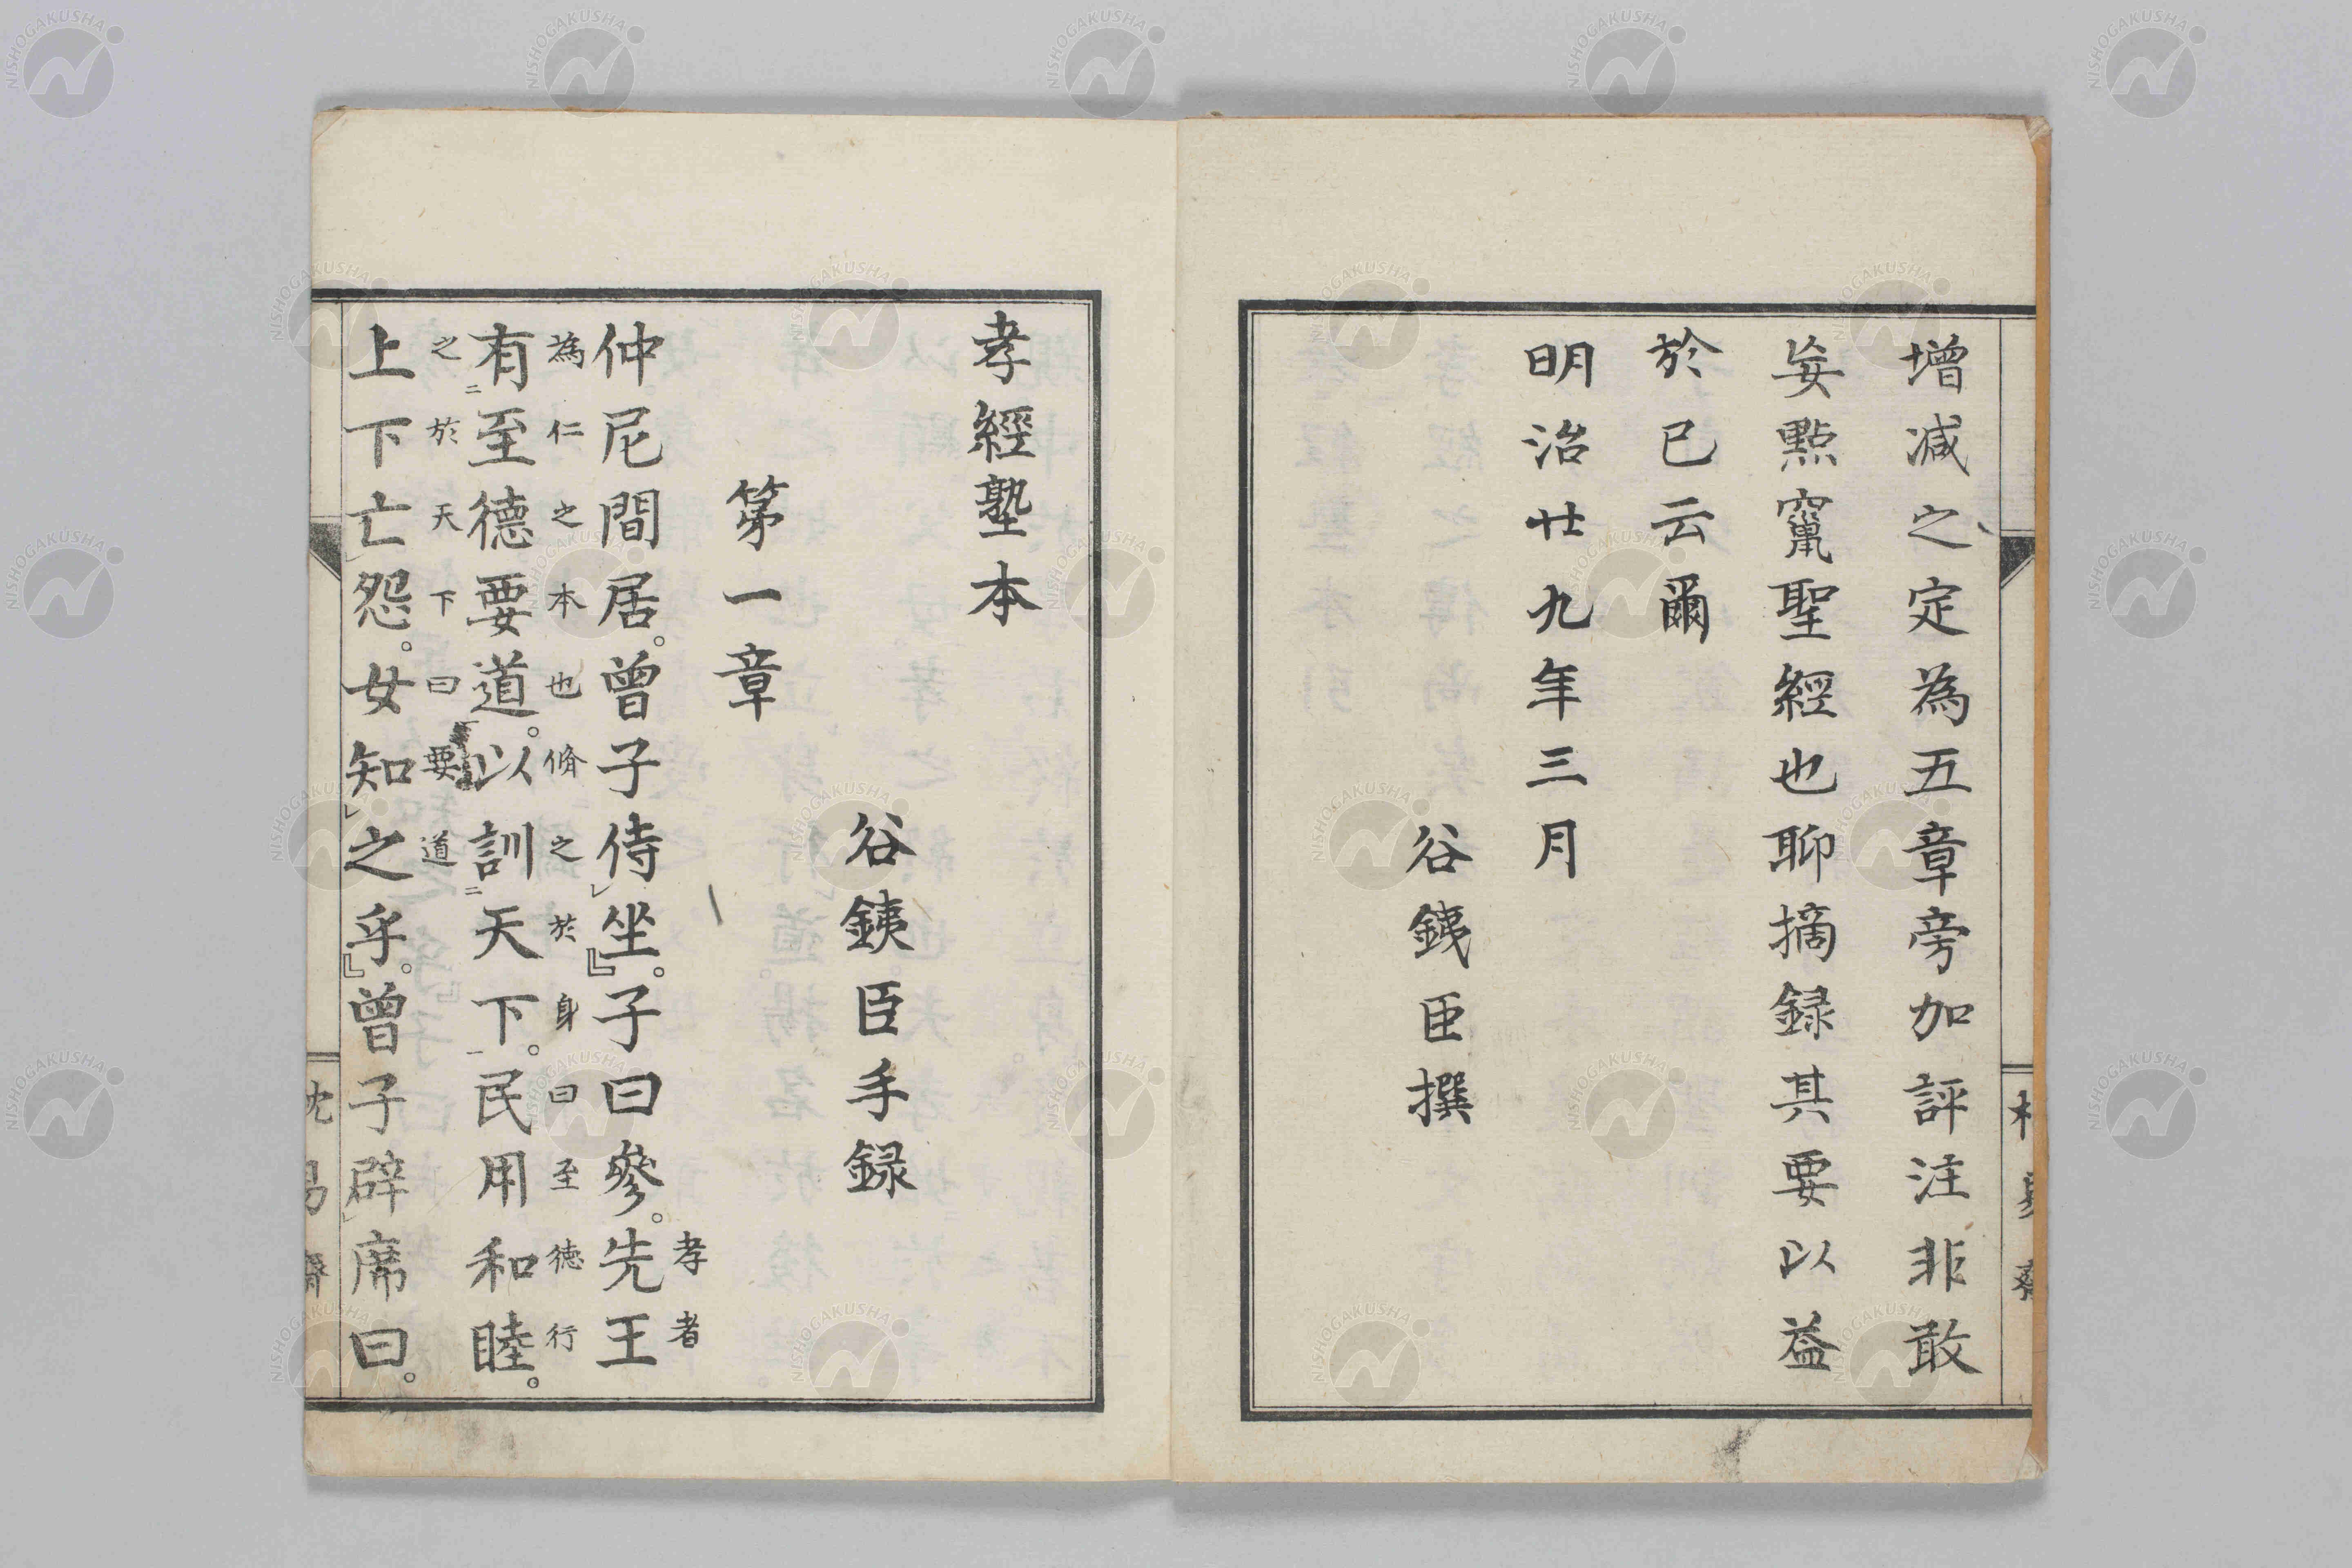 增減之定為五章旁加評注非敢
妄點竄聖經也聊摘録其要以益
於已云爾
明治廿九年三月
谷銕臣撰
孝經塾本
谷銕臣手録
第一章
孝者
仲尼間居。曾子侍坐。』子曰參。先王
為仁之本也脩之於身曰至德行
有二至德要道。以訓二天下。一民用和睦。
之於天下曰要道
上下亡怨。女知之乎。』曾子辟席曰。
NISHOGAKUSHA